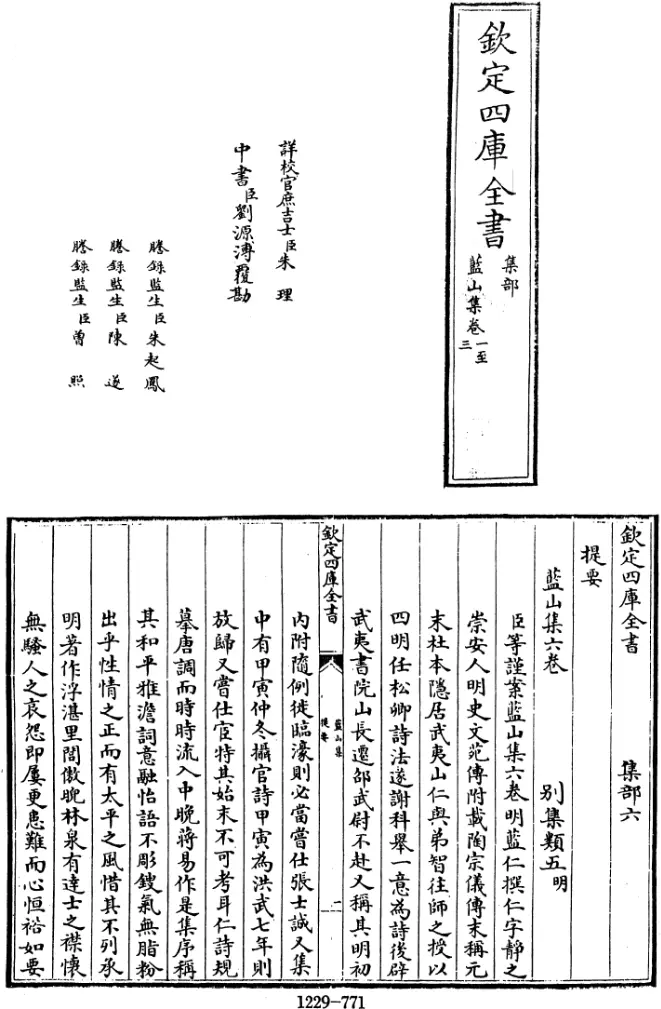 欽定四庫全書
集部
藍山集卷一至三
詳校官庶吉士臣朱理
中書臣劉源溥覆勘
謄錄監生臣朱起鳳
謄錄監生臣陳
謄錄監生臣曾照
欽定四庫全書 集部六
提要
藍山集六卷 别集類五明
臣等謹案藍山集六卷明藍仁撰仁字靜之
崇安人明史文苑傳附載陶宗儀傳末稱元
末杜本隱居武夷山仁與弟智往師之授以
四明任松卿詩法遂謝科舉一意為詩後辟
武夷書院山長遷邵武尉不赴又稱其明初
欽定四庫全書 藍山集 提要 一
內附隨例徙臨濠則必當嘗仕張士誠又集
中有甲寅仲冬攝官詩甲寅為洪武七年則
放歸又嘗仕宦特其始末不可考耳仁詩規
摹唐調而時時流入中晚蔣易作是集序稱
其和平雅澹詞意融怡語不彫鎪氣無脂粉
出乎性情之正而有太平之風惜其不列承
明著作浮湛里閭傲睨林泉有達士之襟懷
無騷人之哀怨即屢更患難而心恒裕如要
1229-771